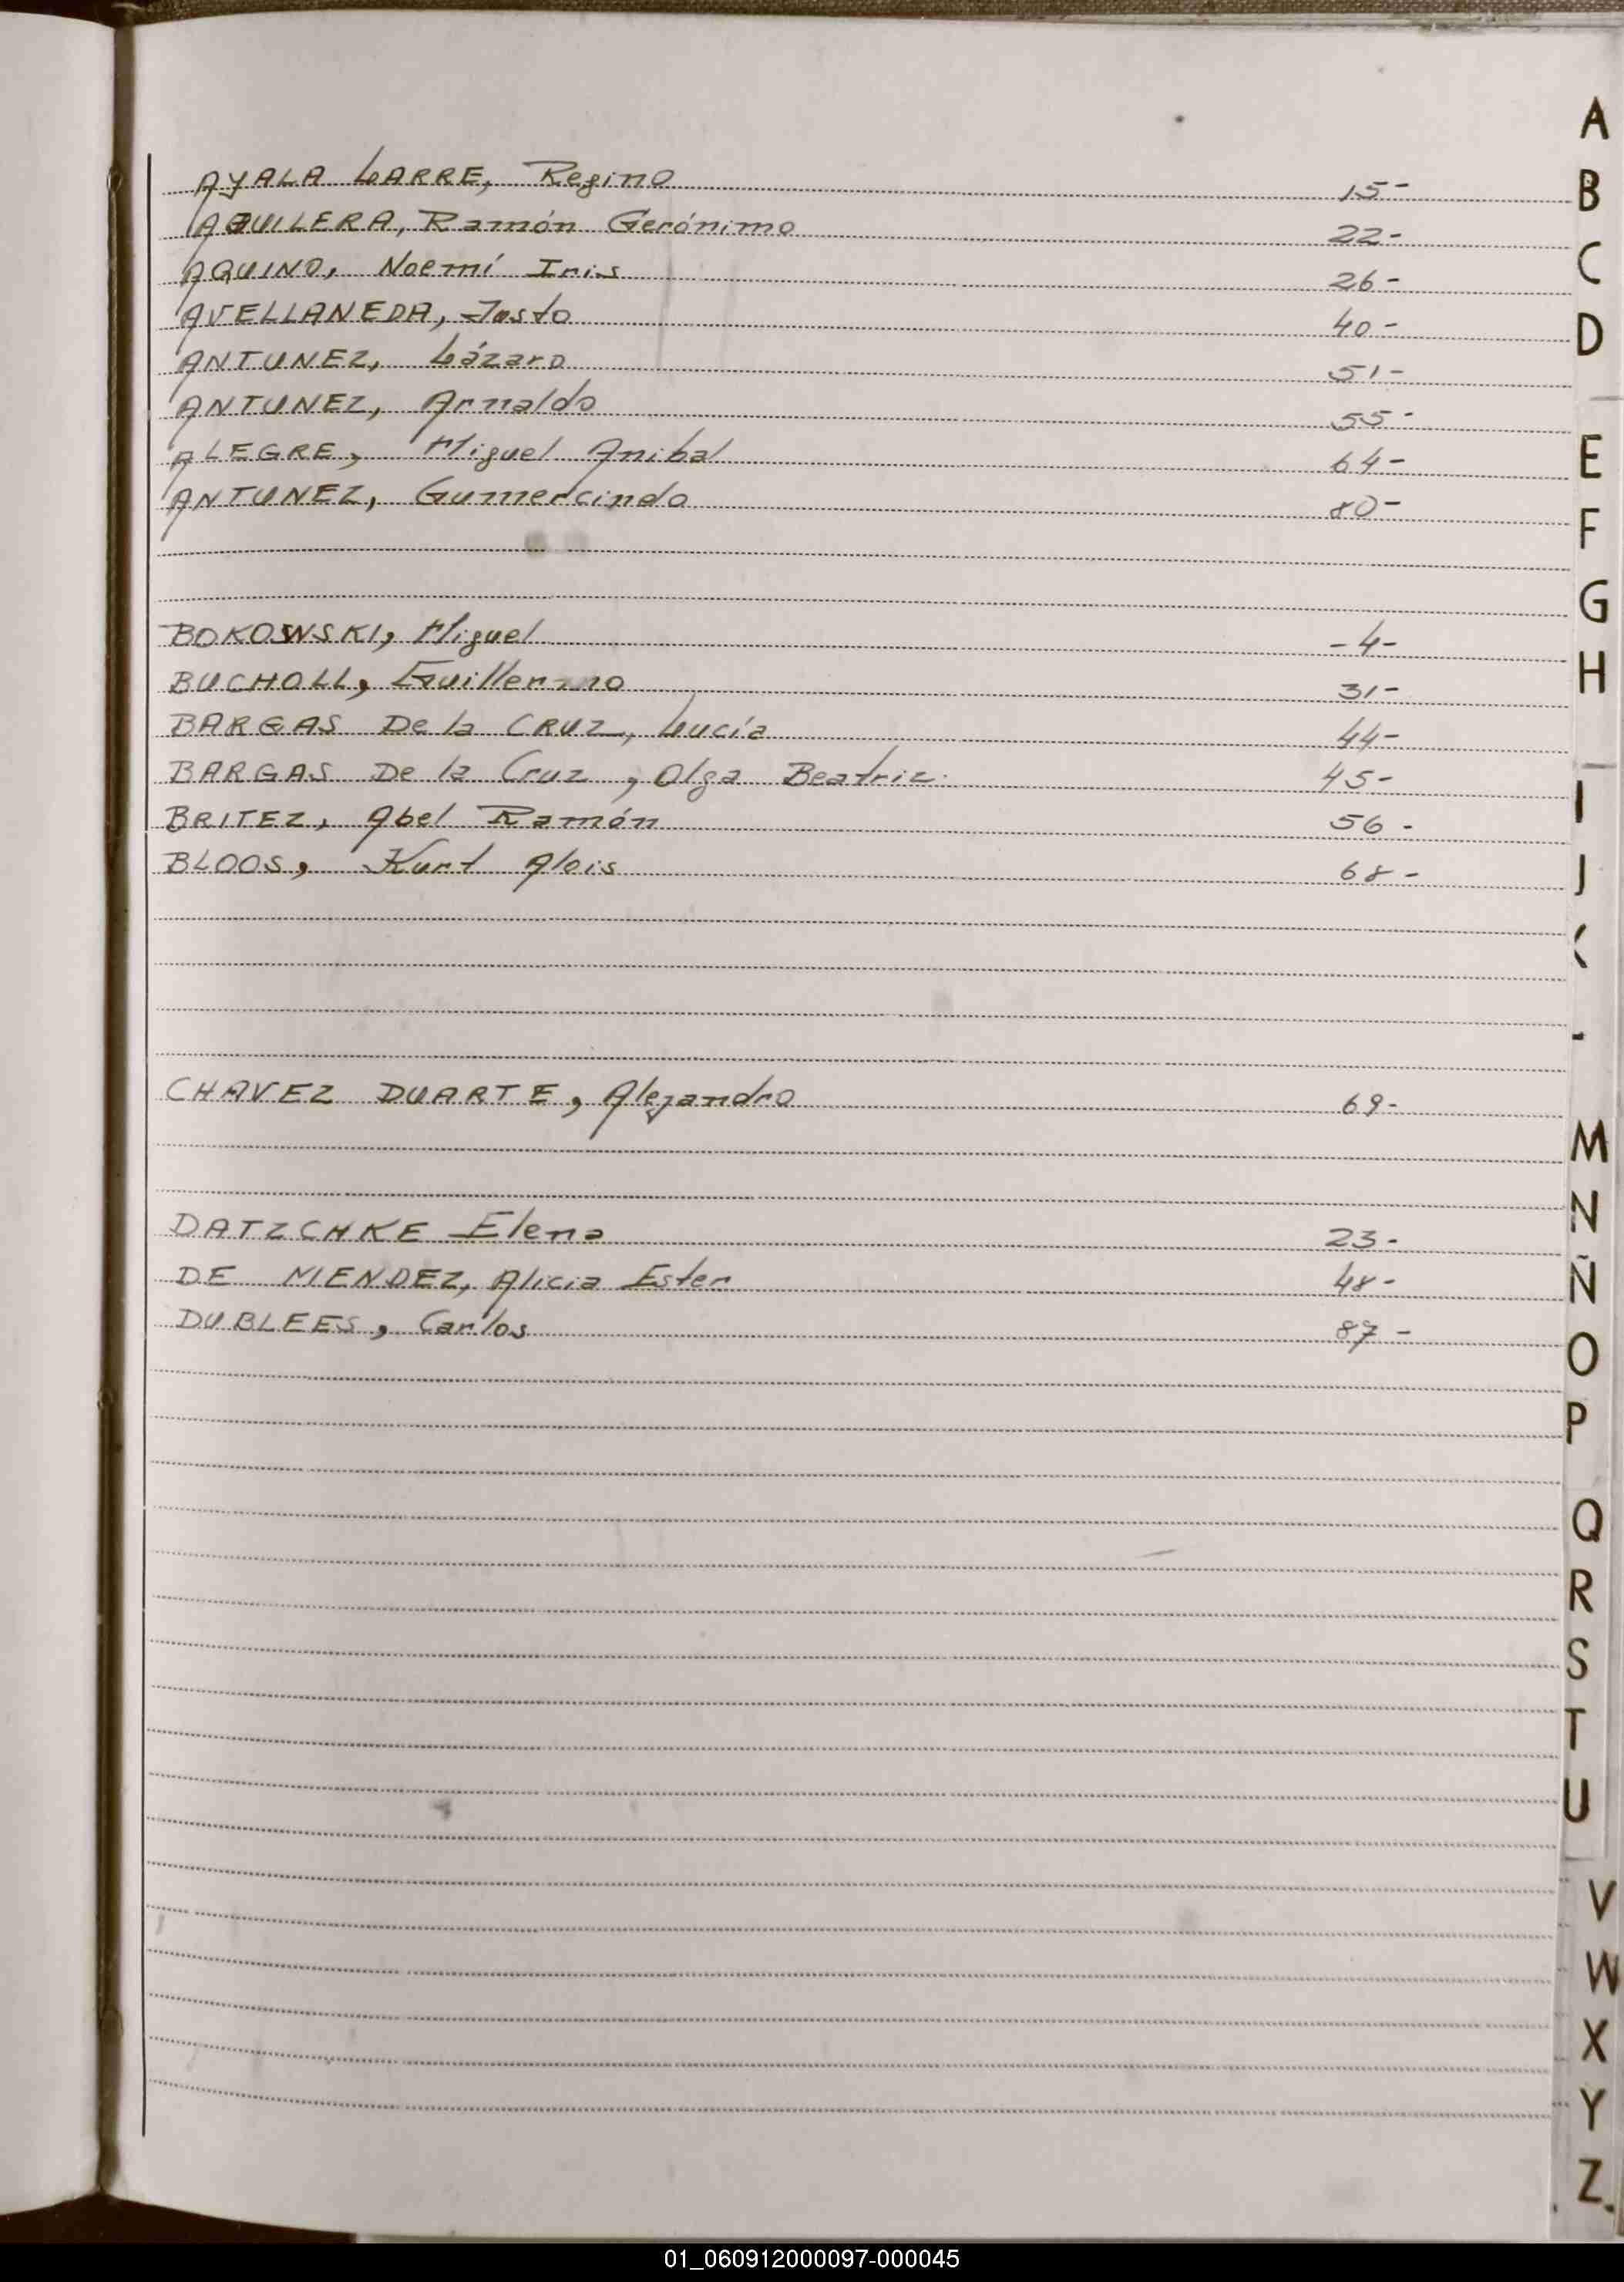 AYALA LARRE, Regino 15-
AGUILERA, Ramón Gerónimo 22-
AQUINO, Noemí Iris 26-
AVELLANEDA, Justo 40-
ANTUNEZ, Lázaro 51-
ANTUNEZ, Arnaldo 55-
ALEGRE, Miguel Anibal 64-
ANTUNEZ, Gumercindo 80-
BOKOWSKI, Miguel -4-
BUCHOLL, Guillermo 31-
BARGAS De la CRUZ, Lucía 44-
BARGAS De la Cruz, Olga Beatriz. 45-
BRITEZ, Abel Ramón 56-
BLOOS, Kurt Alois 68-
CHAVEZ DUARTE, Alejandro 69-
DATZCHKE Elena 23-
DE MENDEZ, Alicia Ester 48-
DUBLEES, Carlos 87-
A
B
C
D
E
F
G
H
I
J
M
N
Ñ
O
P
Q
R
S
T
U
V
W
X
Y
Z
01_060912000097-000045